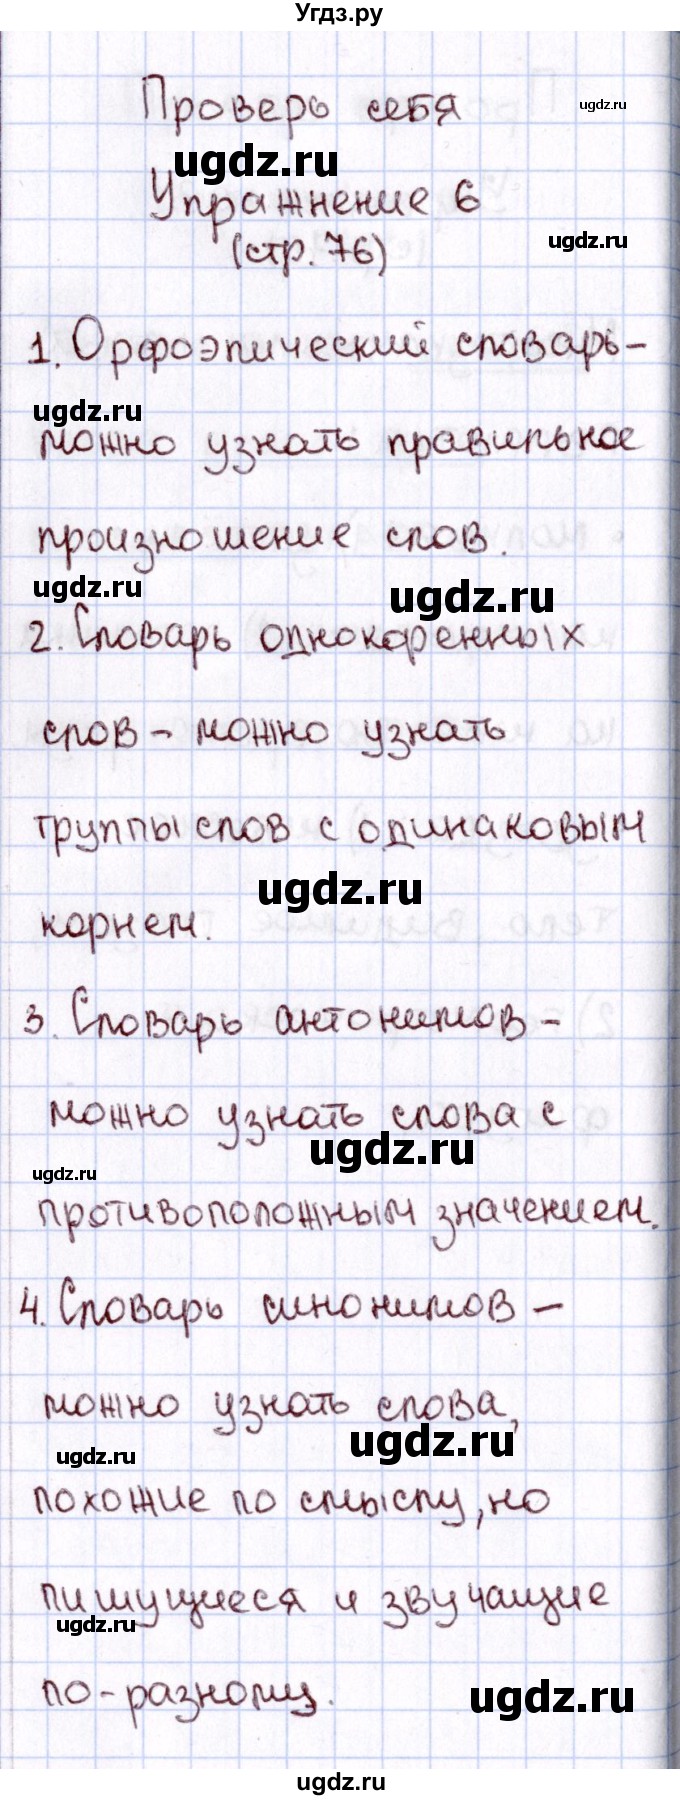 Угдз.ру
Проверь себя
ugdz.ru
ugdz.ru
Упражнение 6
ugdz.ru
(стр. 76)
1. Орфоэпический словарь-
ugdz.ru
можно узнать правильное
произношение слов.
ugdz.ru
ugdz.ru
2. Словарь однокоренных
слов - можно узнать
группы слов с одинаковым
ugdz.ru
корнем.
3. Словарь антонимов -
можно узнать слова с
ugdz.ru
ugdz.ru
противоположным значением.
4. Словарь синонимов -
можно узнать слова,
ugdz.ru
ugdz.ru
похожие по смыслу, но
пишущиеся и звучащие
ugdz.ru
по-разному.
ugdz.ru
ugdz.ru